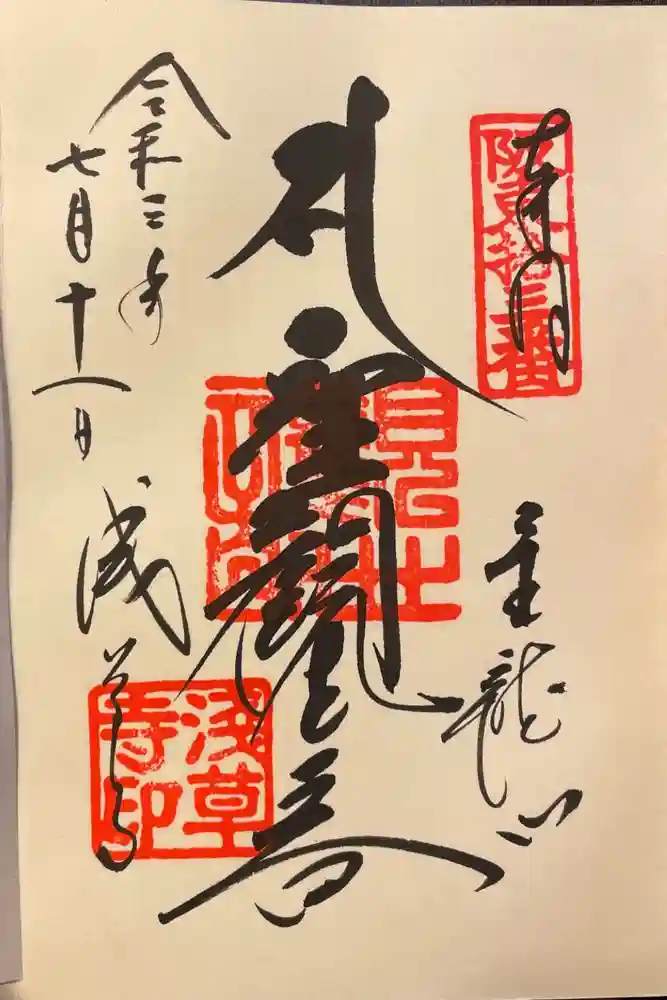 奉拝
阪東拾三番
金龍山
聖観世音
令和三年
七月十八日
浅草寺
浅草寺印